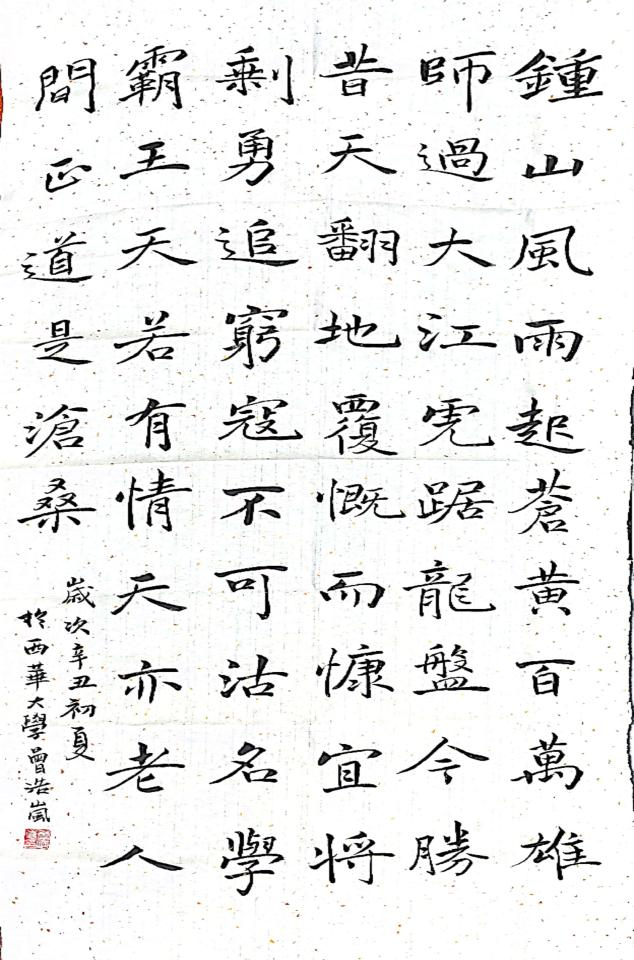 鍾山風雨起蒼黃百萬雄
師過大江虎踞龍盤今勝
昔天翻地覆慨而慷宜將
剩勇追窮寇不可沽名學
霸王天若有情天亦老人
間正道是滄桑
歲次辛丑初夏
於西華大學曾浩嵐